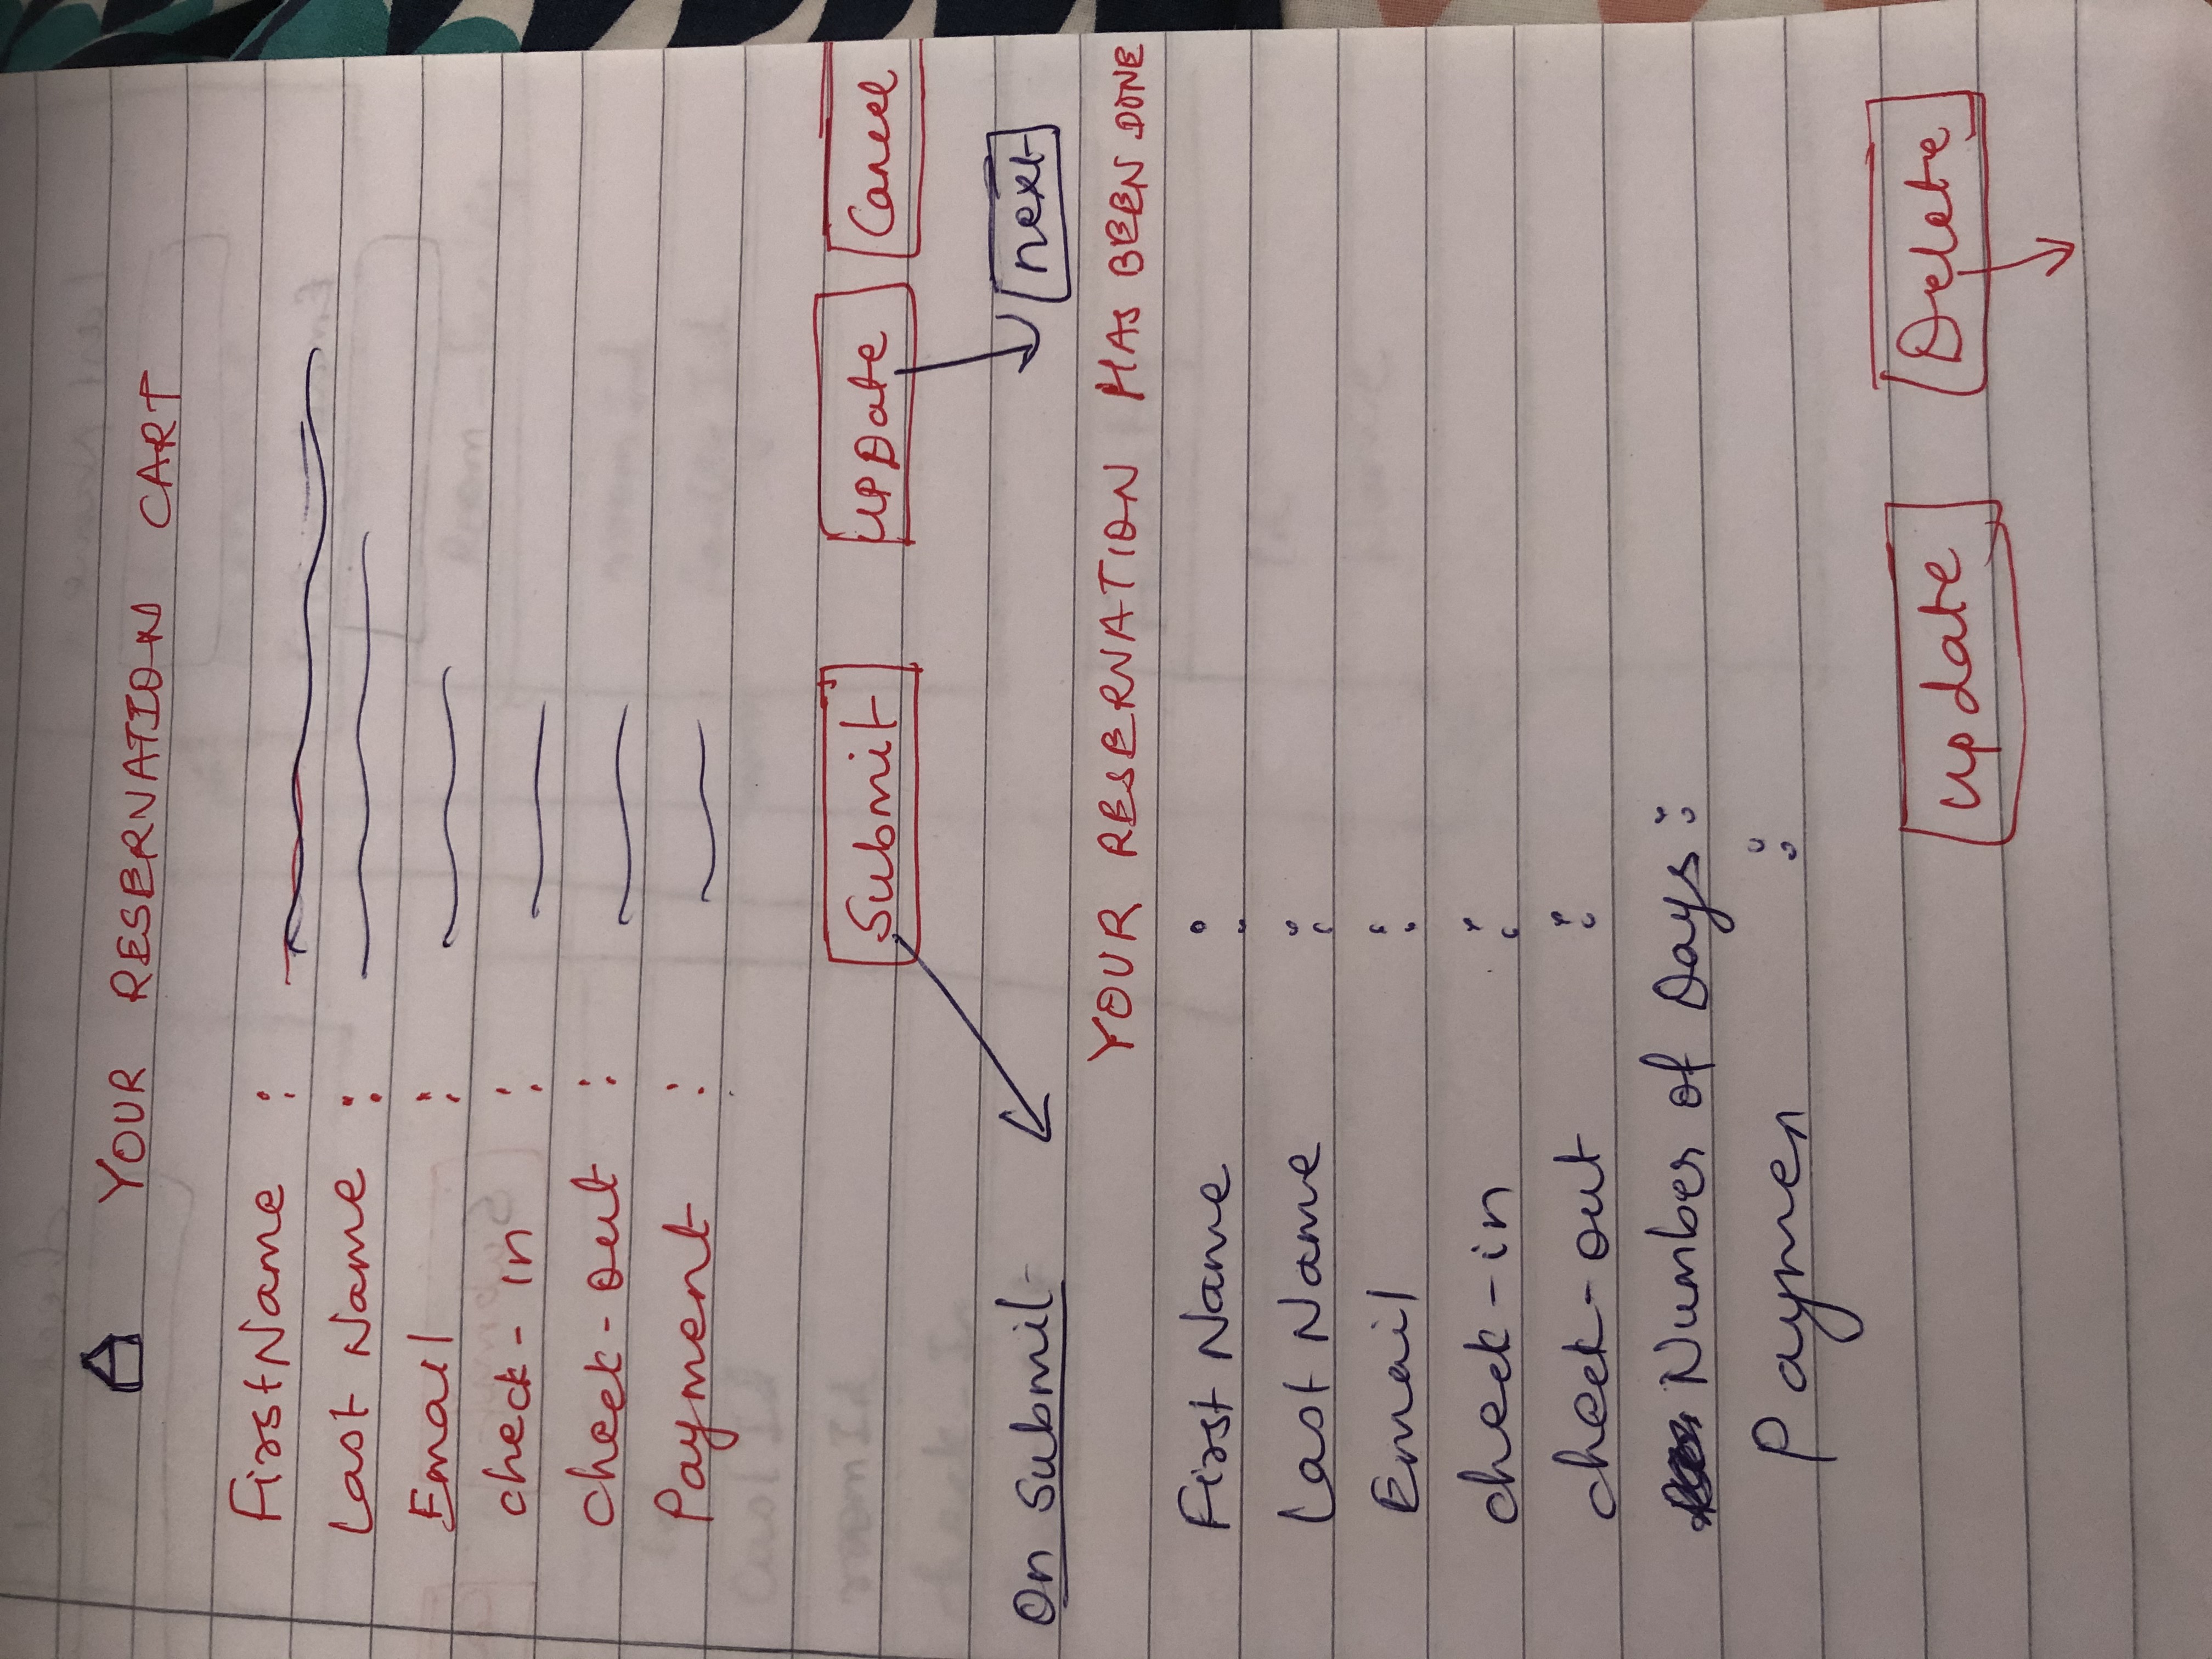 YOUR RESERVATION CART
FirstName :
Last Name :
Email :
check-in :
check-out :
Payment :
Submit UPDate Cancel
On Submit next
YOUR RESERVATION HAS BEEN DONE
First Name :
Last Name :
Email :
check-in :
check-out :
Number of Days :
Paymen :
update Delete